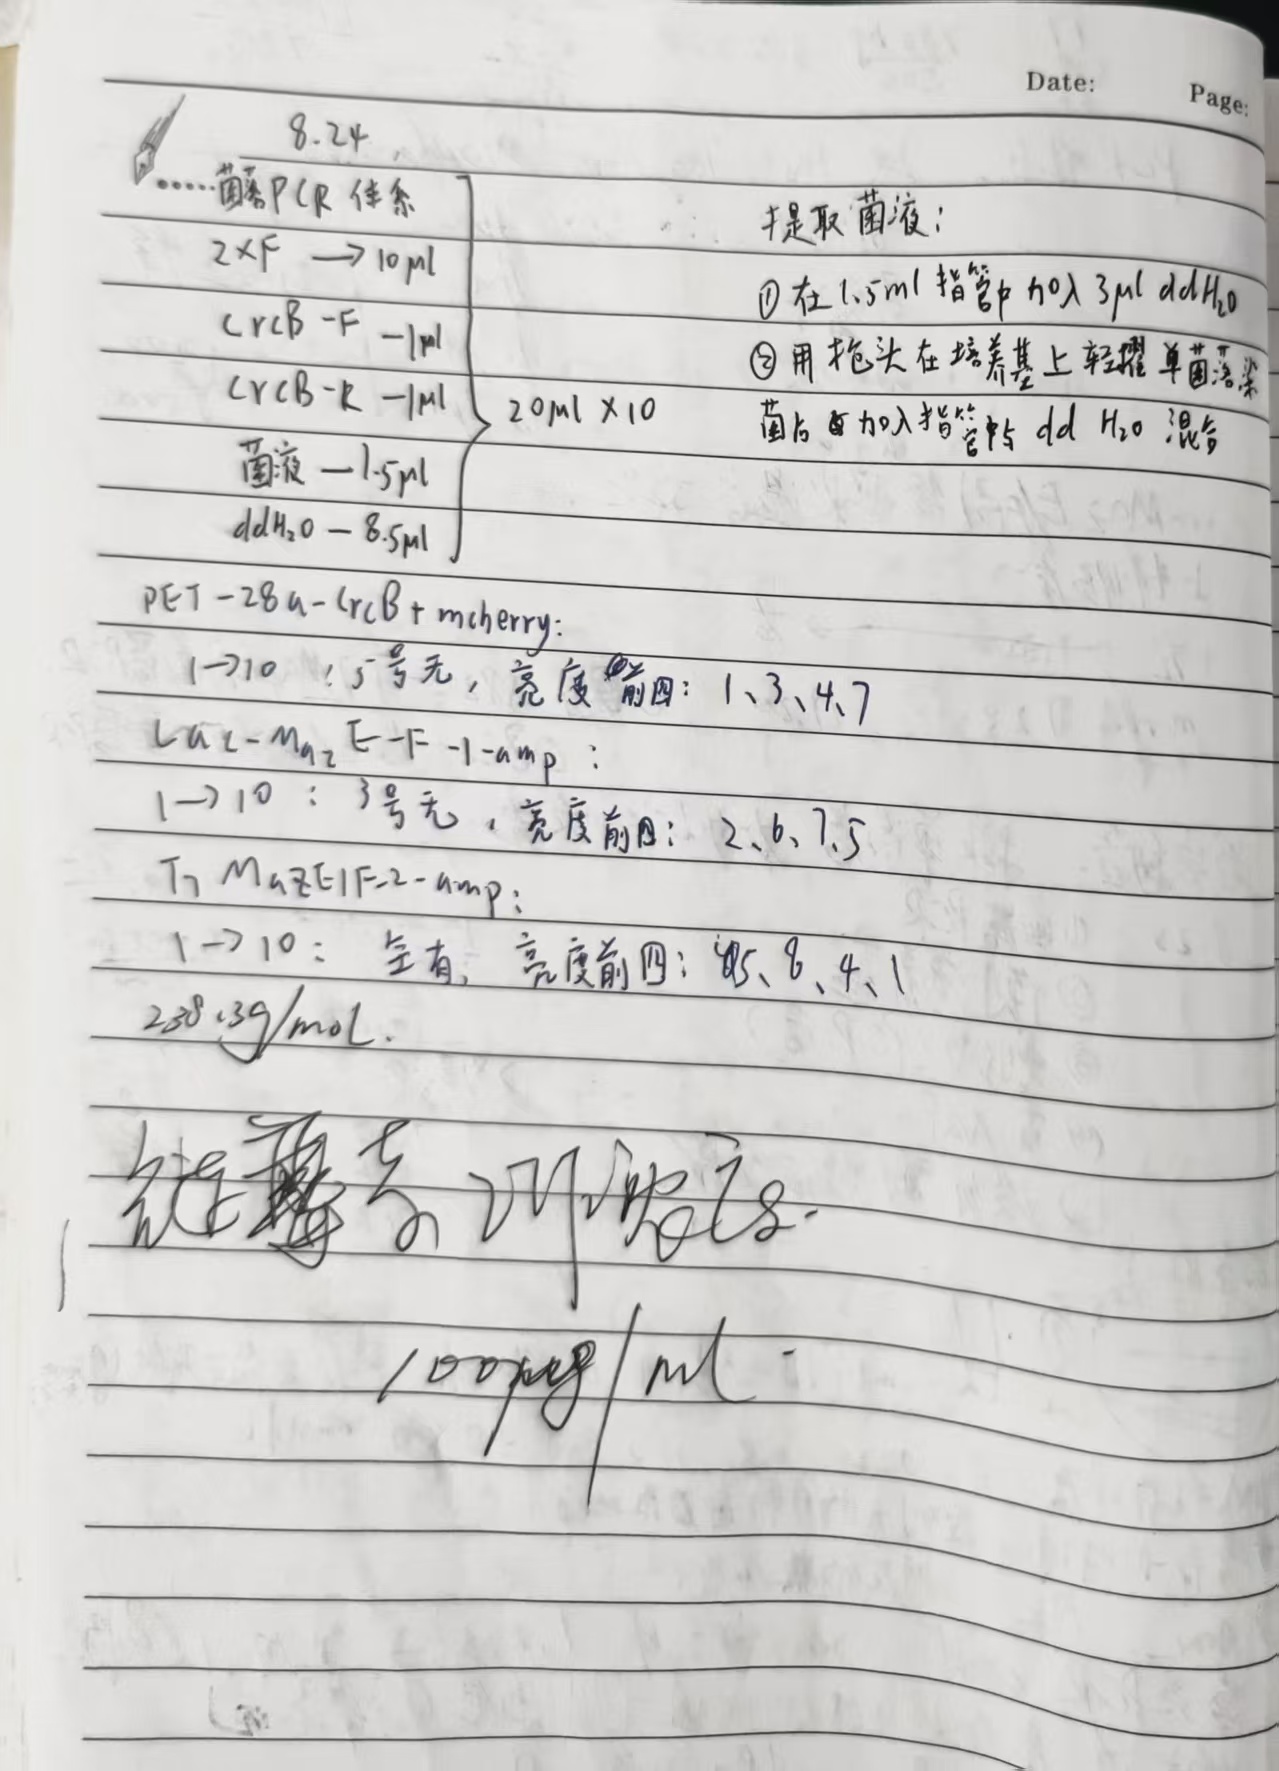 Date: Page:
8.24
菌落PCR 体系
2×F → 10μl
CrcB-F —1μl
CrcB-R —1μl
菌液 —1.5μl
ddH₂O — 8.5μl
20μl ×10
提取菌液:
① 在1.5ml 指管中加入 3μl ddH₂O
② 用枪头在培养基上轻擢 单菌落染
菌后 加入指管中与 dd H₂O 混合
PET-28a-CrcB+mcherry:
1→10 : 5号无, 亮度前四: 1、3、4、7
Lac-MazE-F-1-amp:
1→10 : 3号无, 亮度前四: 2、6、7、5
T7 MazE1F-2-amp:
1→10: 全有, 亮度前四: 5、8、4、1
238.3g/mol.
链霉素
100μg/ml.